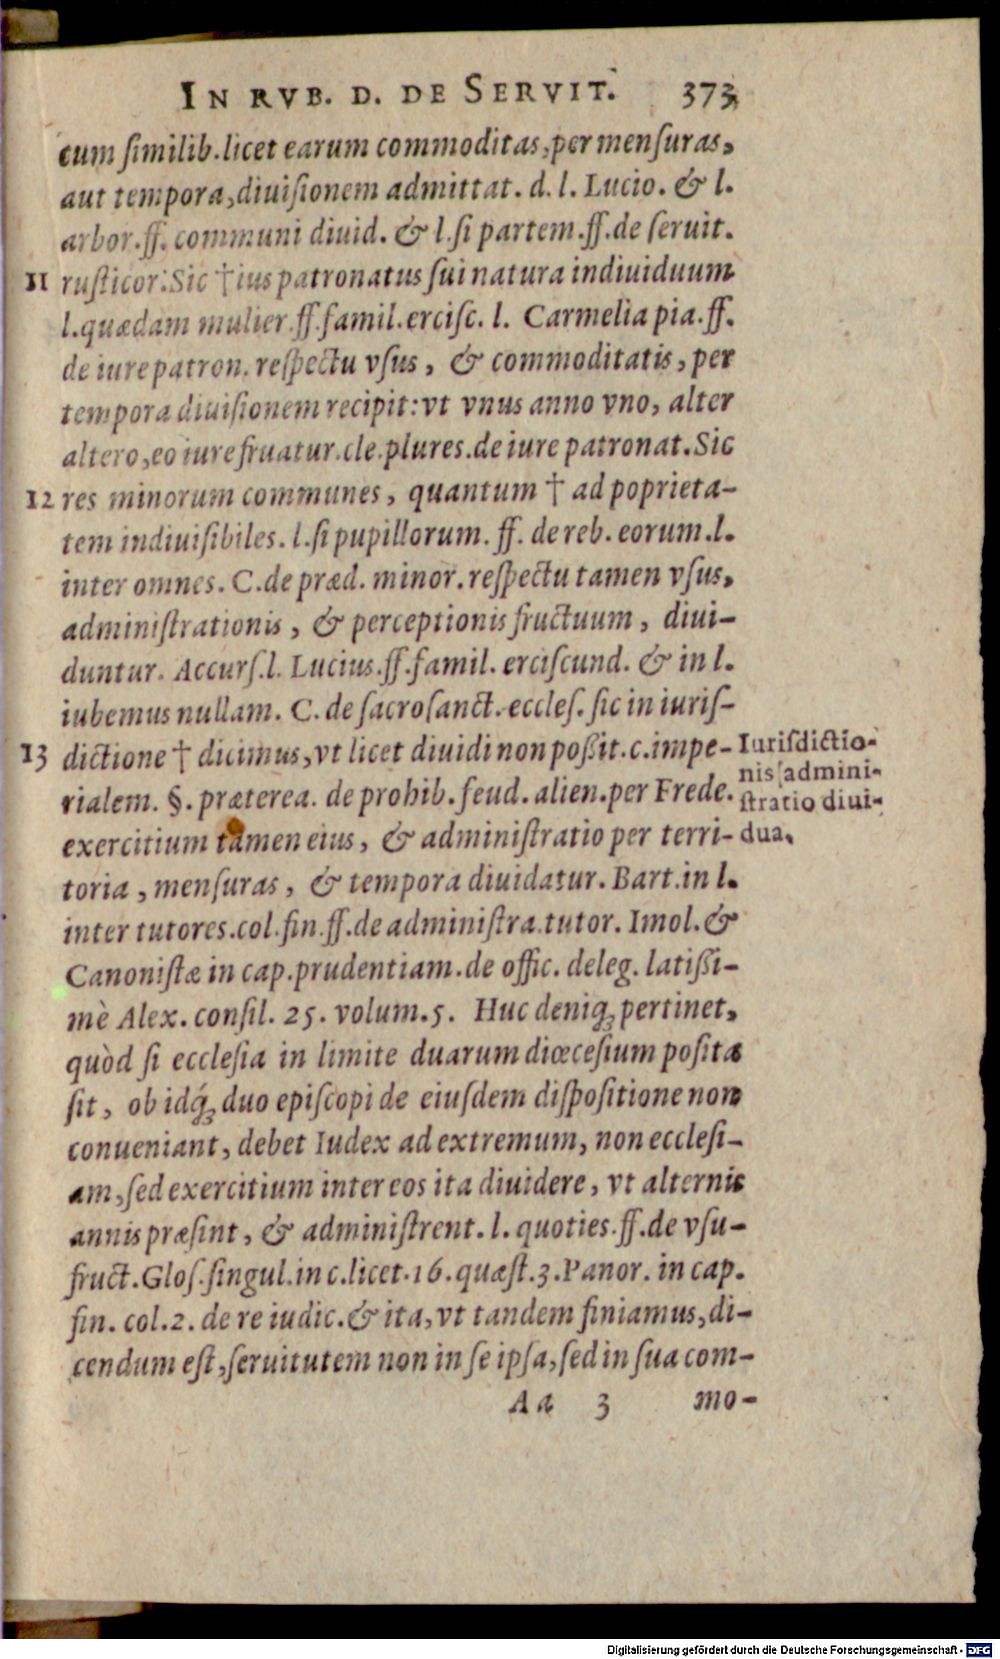 IN RVB. D. DE SERVIT. 373
cum ſimilib. licet earum commoditas, per menſuras,
aut tempora, diuiſionem admittat. d. l. Lucio. & l.
arbor. ff. communi diuid. & l. ſi partem. ff. de ſeruit.
11 ruſticor. Sic † ius patronatus ſui natura indiuiduum
l. quædam mulier. ff. famil. erciſc. l. Carmelia pia. ff.
de iure patron. reſpectu vſus, & commoditatis, per
tempora diuiſionem recipit: vt vnus anno vno, alter
altero, eo iure fruatur. cle. plures. de iure patronat. Sic
12 res minorum communes, quantum † ad poprieta-
tem indiuiſibiles. l. ſi pupillorum. ff. de reb. eorum. l.
inter omnes. C. de præd. minor. reſpectu tamen vſus,
adminiſtrationis, & perceptionis fructuum, diui-
duntur. Accurſ. l. Lucius. ff. famil. erciſcund. & in l.
iubemus nullam. C. de ſacroſanct. eccleſ. ſic in iuriſ-
13 dictione † dicimus, vt licet diuidi non poßit. c. impe-
rialem. §. præterea. de prohib. feud. alien. per Frede.
exercitium tamen eius, & adminiſtratio per terri-
toria, menſuras, & tempora diuidatur. Bart. in l.
inter tutores. col. fin. ff. de adminiſtra. tutor. Imol. &
Canoniſtæ in cap. prudentiam. de offic. deleg. latißi-
mè Alex. conſil. 25. volum. 5. Huc deniq; pertinet,
quòd ſi eccleſia in limite duarum diœceſium poſita
ſit, ob idq́; duo epiſcopi de eiuſdem diſpoſitione non
conueniant, debet Iudex ad extremum, non eccleſi-
am, ſed exercitium inter eos ita diuidere, vt alternis
annis præſint, & adminiſtrent. l. quoties. ff. de vſu-
fruct. Gloſ. ſingul. in c. licet. 16. quæſt. 3. Panor. in cap.
fin. col. 2. de re iudic. & ita, vt tandem finiamus, di-
cendum eſt, ſeruitutem non in ſe ipſa, ſed in ſua com-
Aa 3 mo-
Iurisdictio-
nis admini-
ſtratio diui-
dua.
Digitalisierung gefördert durch die Deutsche Forschungsgemeinschaft - DFG